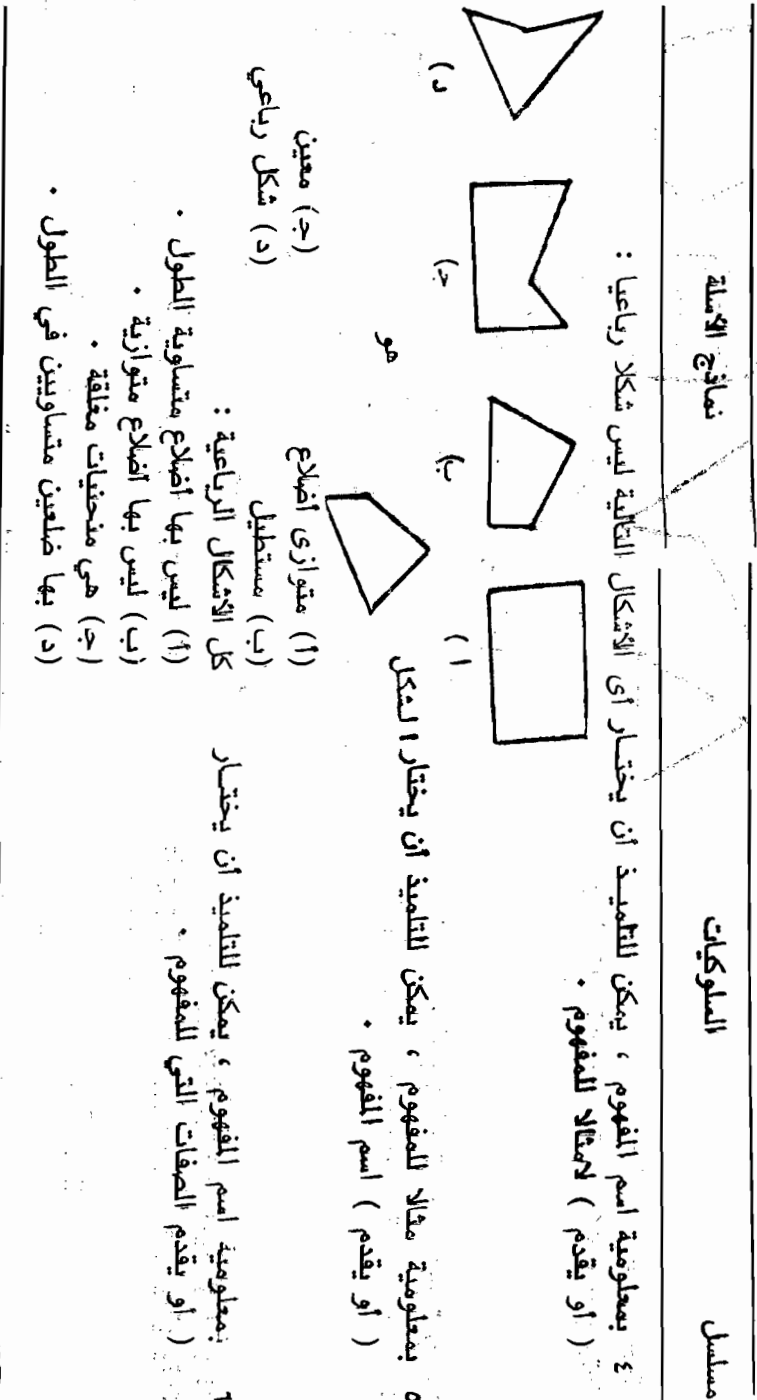 مسلسل
السلوكيات
نماذج الأسئلة
٤ بمعلومية اسم المفهوم ، يمكن للتلميذ أن يختار
( أو يقدم ) لامثالا للمفهوم .
أى الأشكال التالية ليس شكلا رباعيا :
أ )
ب)
ج)
د)
٥ بمعلومية مثالا للمفهوم ، يمكن للتلميذ أن يختار
( أو يقدم ) اسم المفهوم .
الشكل
هو
(أ) متوازى أضلاع
(ب) مستطيل
(ج) معين
(د) شكل رباعي
٦ بمعلومية اسم المفهوم ، يمكن للتلميذ أن يختار
( أو يقدم الصفات التي للمفهوم .
كل الأشكال الرباعية :
(أ) ليس بها أضلاع متساوية الطول .
(ب) ليس بها أضلاع متوازية .
(ج) هي منحنيات مغلقة .
(د) بها ضلعين متساويين في الطول .